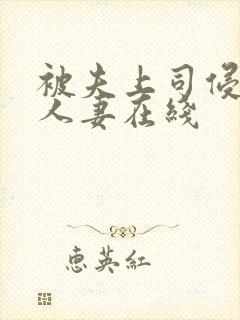 被夫上司侵
人妻在线
惠英红